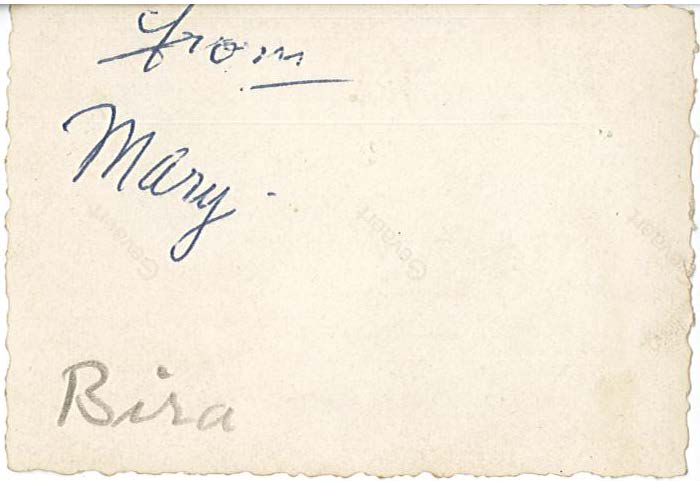 from
Mary.
Gevaert Gevaert Gevaert
Bira